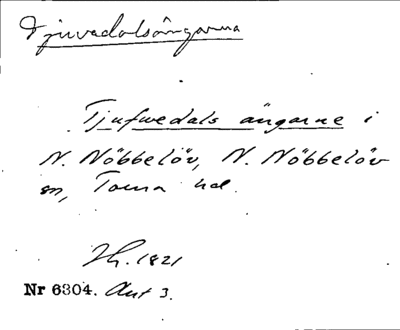 Tjuvadalsängarna
Tjufwedals ängarne i
N. Nöbbelöv, N. Nöbbelöv
sn, Torna hd.
1821
Nr 6304. Akt 3.